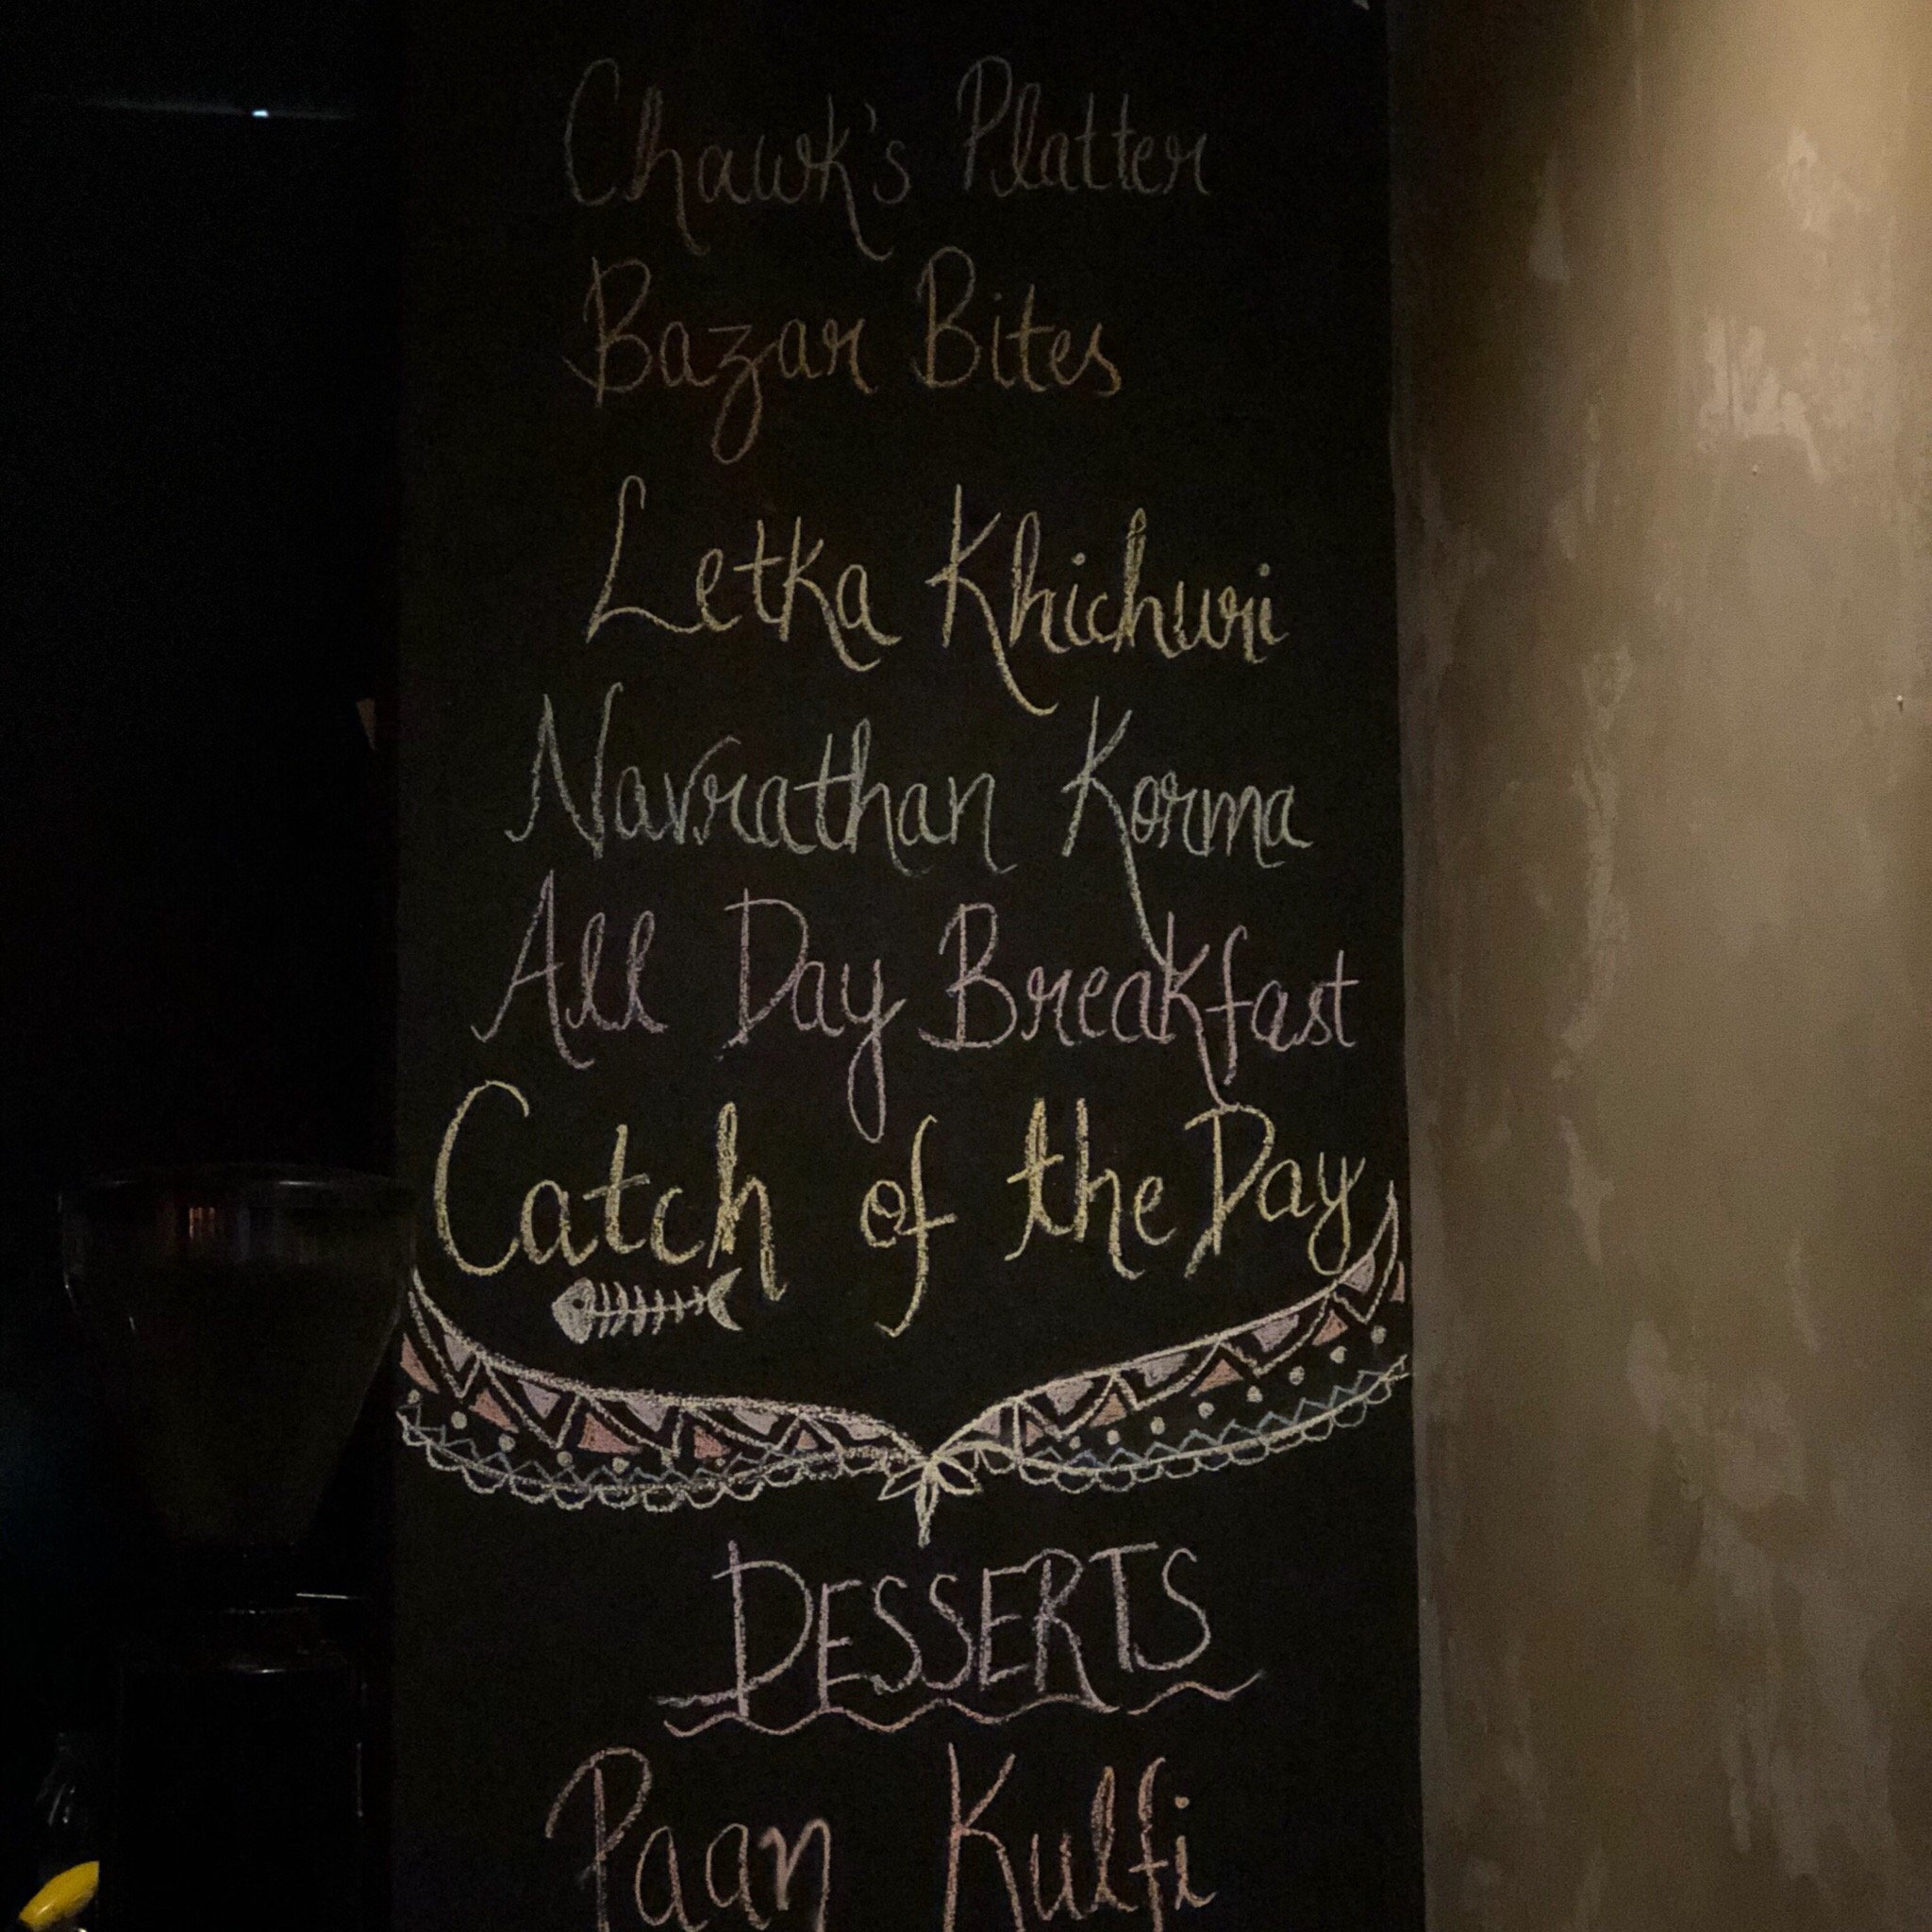 Chawk's Platter
Bazar Bites
Letka Khichuri
Navrathan Korma
All Day Breakfast
Catch of the Day
DESSERTS
Paan Kulfi